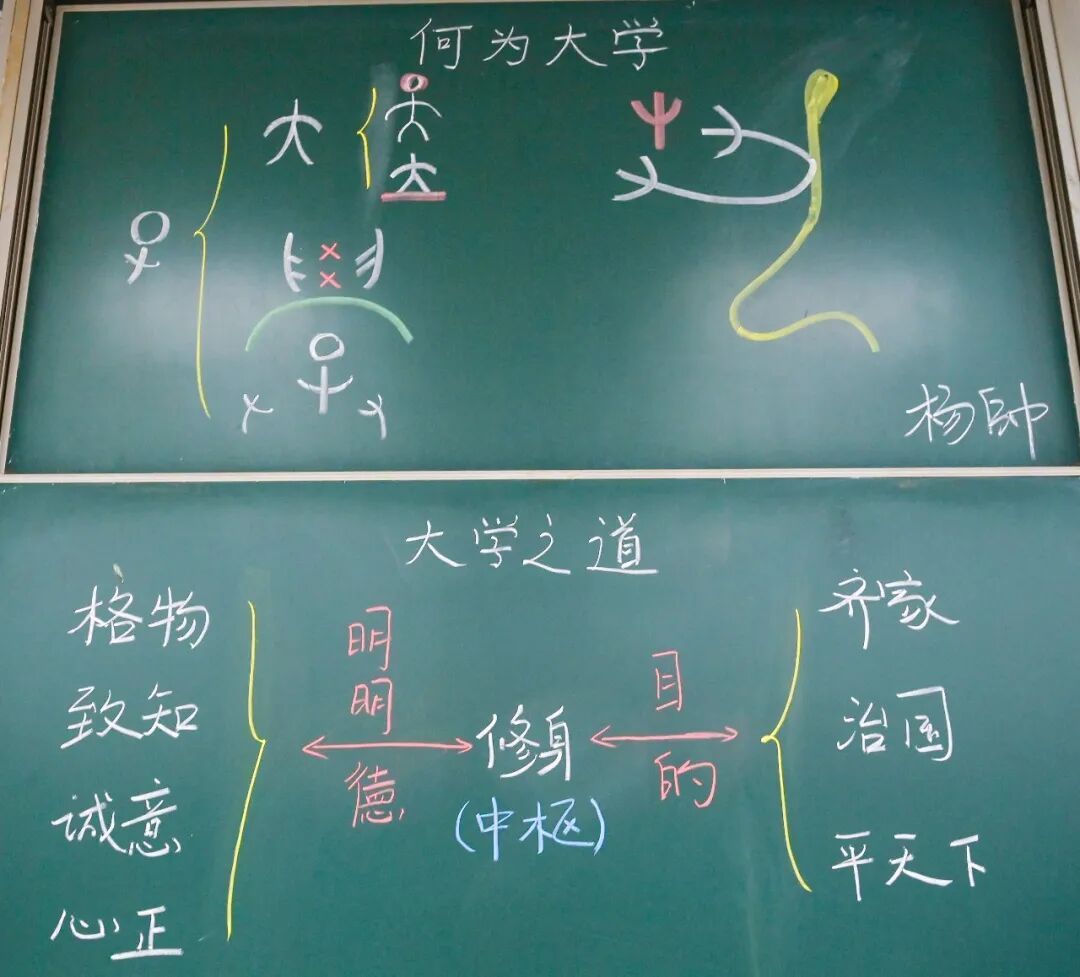 何为大学
大
××
杨帥
大学之道
格物
致知
诚意
心正
明明德
修身
(中枢)
目的
齐家
治国
平天下